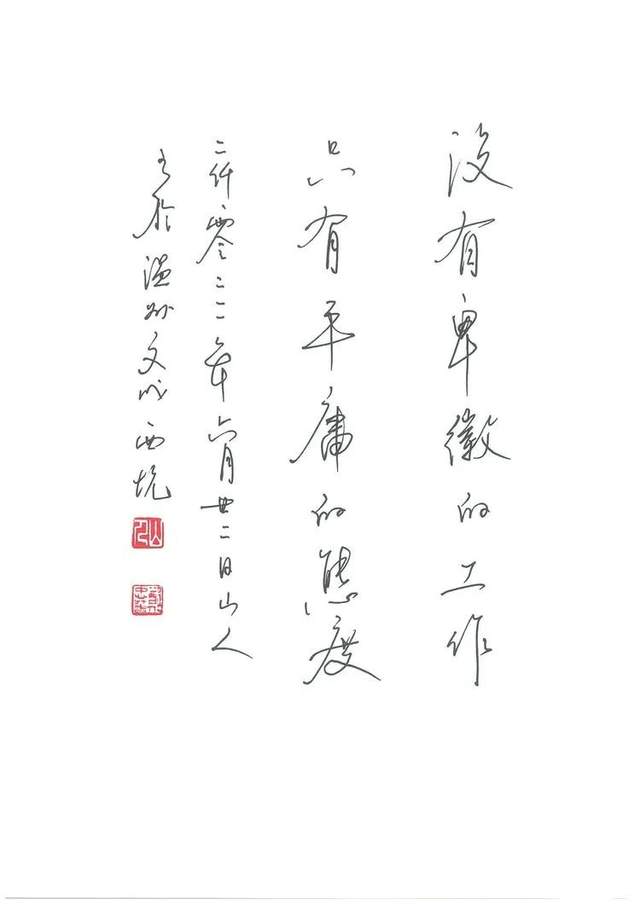 没有卑微的工作
只有平庸的態度
二仟零二二年六月廿二日山人
书於温州文成西坑
山人